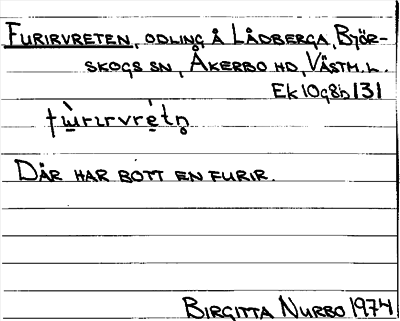 FURIRVRETEN, ODLING Å LÅDBERGA, BJÖR-
SKOGS SN, ÅKERBO HD, VÄSTM. L.
EK 10g8b 131
fù̱rɪrvré̱tn̥
DÄR HAR BOTT EN FURIR.
BIRGITTA NURBO 1974